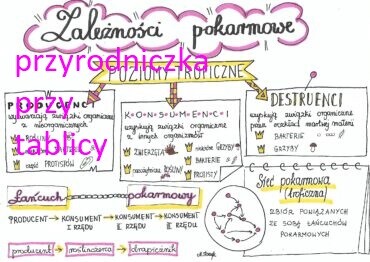 Zależności pokarmowe
przyrodniczka
przy
tablicy
POZIOMY TROFICZNE
PRODUCENCI
wytwarzają związki organiczne
z nieorganicznych
część PROTISTÓW
KONSUMENCI
uzyskują związki organiczne
z innych organizmów
ZWIERZĘTA
niektóre GRZYBY
BAKTERIE
PROTISTY
DESTRUENCI
uzyskują związki organiczne
martwej materii
BAKTERIE
GRZYBY
Łańcuch pokarmowy
PRODUCENT → KONSUMENT → KONSUMENT → KONSUMENT
I RZĘDU II RZĘDU III RZĘDU
producent → roślinożerca → drapieżnik
Sieć pokarmowa
(troficzna)
ZBIÓR POWIĄZANYCH
ZE SOBĄ ŁAŃCUCHÓW
POKARMOWYCH